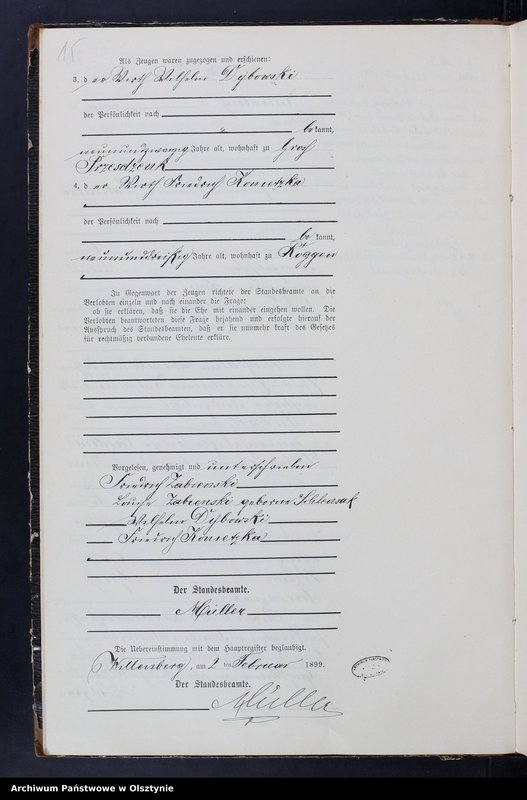 15
Als Zeugen waren zugezogen und erschienen:
3. der Wirth Wilhelm Dybowski
der Persönlichkeit nach
bekannt,
neunundzwanzig Jahre alt, wohnhaft zu Groß
Przesdzenk
4. der Wirth Friedrich Konietzka
der Persönlichkeit nach
bekannt,
neununddreißig Jahre alt, wohnhaft zu Röggen
In Gegenwart der Zeugen richtete der Standesbeamte an die
Verlobten einzeln und nach einander die Frage:
ob sie erklären, daß sie die Ehe mit einander eingehen wollen. Die
Verlobten beantworteten diese Frage bejahend und erfolgte hierauf der
Ausspruch des Standesbeamten, daß er sie nunmehr kraft des Gesetzes
für rechtmäßig verbundene Eheleute erkläre.
Vorgelesen, genehmigt und unterschrieben
Friedrich Zabienski
Louise Zabienski geborene
Wilhelm Dybowski
Friedrich Konietzka
Der Standesbeamte.
Müller
Die Uebereinstimmung mit dem Hauptregister beglaubigt.
Willenberg, am 2 ten Februar 1899.
Der Standesbeamte.
Müller
Archiwum Państwowe w Olsztynie